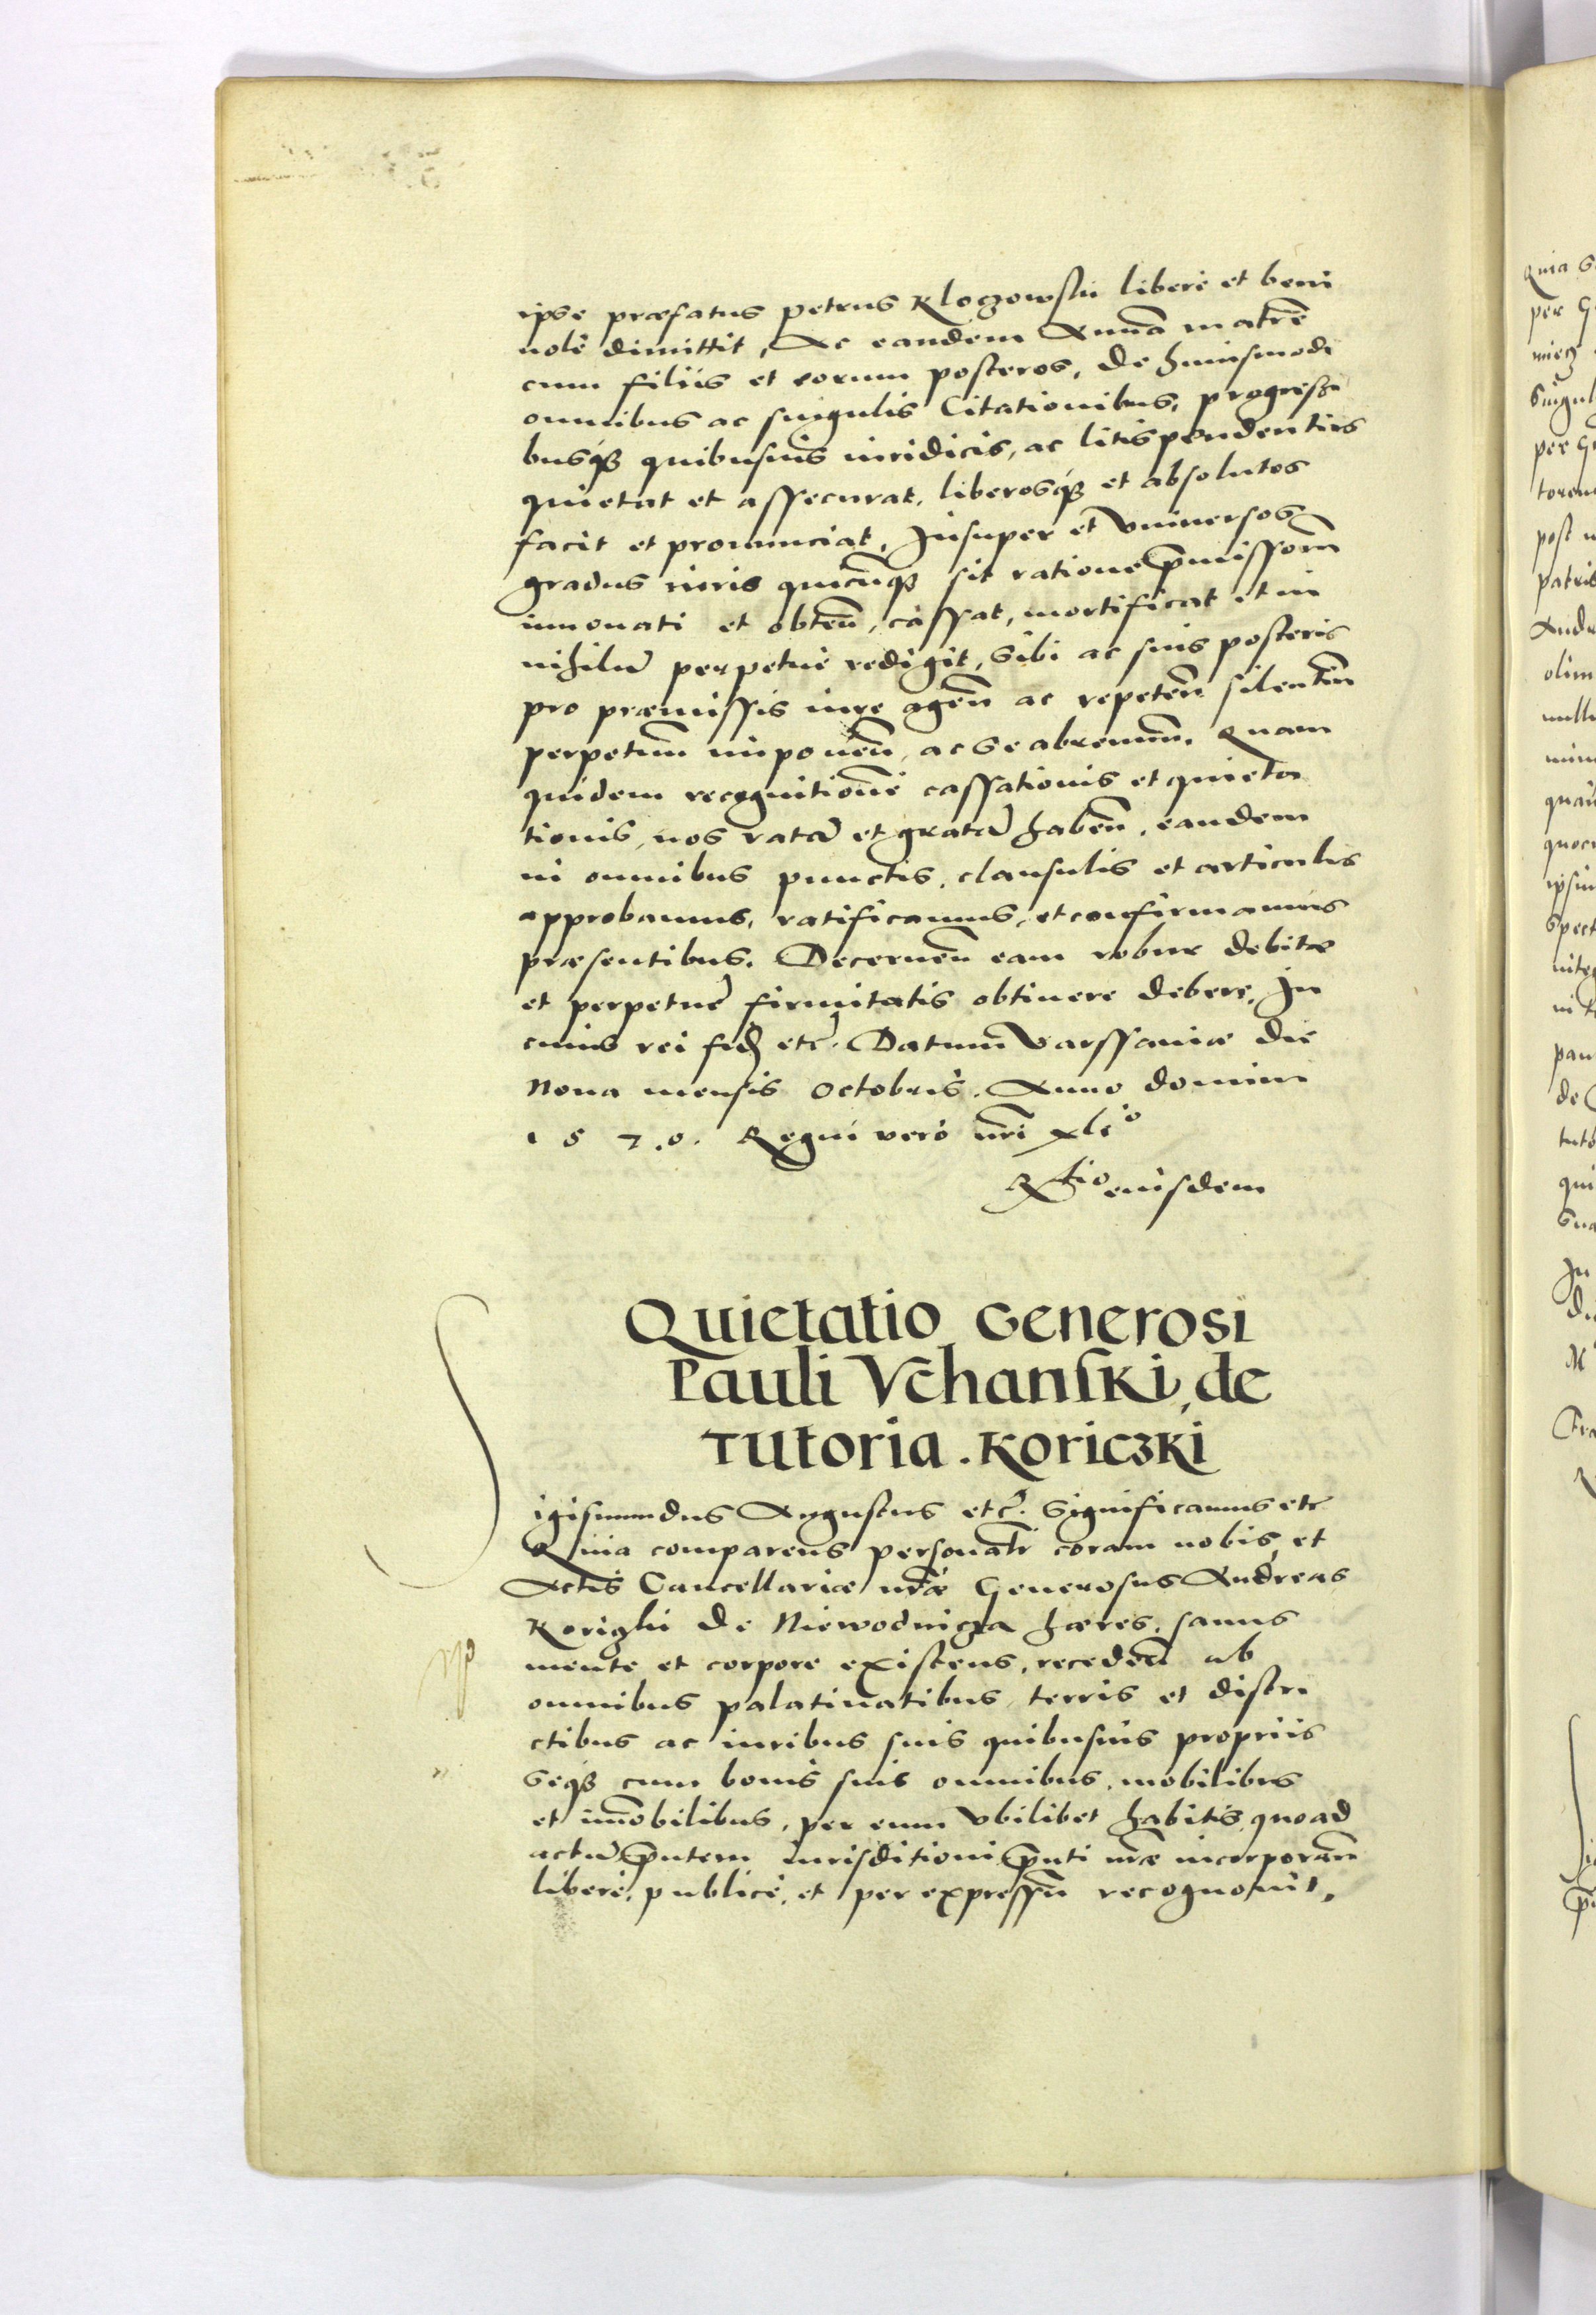 ipse præfatus Petrus Kloczowski liberè et beni
uolè dimittit, Ac eandem Annã matrẽ
cum filiis et eorum posteros, de huiusmodi
omnibus ac singulis Citationibus, progressi
busq́ꝫ quibusuis iuridicis, ac litispendentiis
quietat et assecurat, liberosq́ꝫ et absolutos
facit et pronunciat, Insuper et Vniuersos
gradus iuris quicũqꝫ sit ratione p̃missorũ
innouati et obteñ, cassat, mortificat et in
nihilũ perpetuè redigit, Sibi ac suis posteris
pro præmissis iure ageñ ac repeteñ silentiũ
perpetuũ imponeñ, ac se abrenuñ. Quam
quidem recognitionẽ cassationis et quieta
tionis, nos ratã et gratã habeñ, eandem
in omnibus punctis, clausulis et articulis
approbamus, ratificamus, et confirmamus
præsentibus. Decerneñ eam robur debitæ
et perpetuę firmitatis obtinere debere, In
cuius rei fid̃ etc̃. Datum Varssauiæ die
Nona mensis Octobris. Anno domini
1570. Regni verò nr̃i xli°
Rtio eiusdem
Quietatio Generosi
Pauli Vchanſki, de
Tutoria. Koriczki
Sigismundus Augustus etc̃. Significamus etc̃
Quia comparens personalr̃ coram nobis et
Actis Cancellariæ nr̃æ Generosus Andreas
Koriczki de Niewodnicza hæres, sanus
mente et corpore existens, recedeñ ab
omnibus palatinatibus, terris et distri
ctibus ac iuribus suis quibusuis propriis
seqꝫ cum bonis suis omnibus, mobilibus
et im̃obilibus, per eum Vbilibet habitis, quoad
actũ p̃ntem iurisditioni p̃nti nr̃æ incorporañ
liberè, publicè, et per expressũ recognouit,